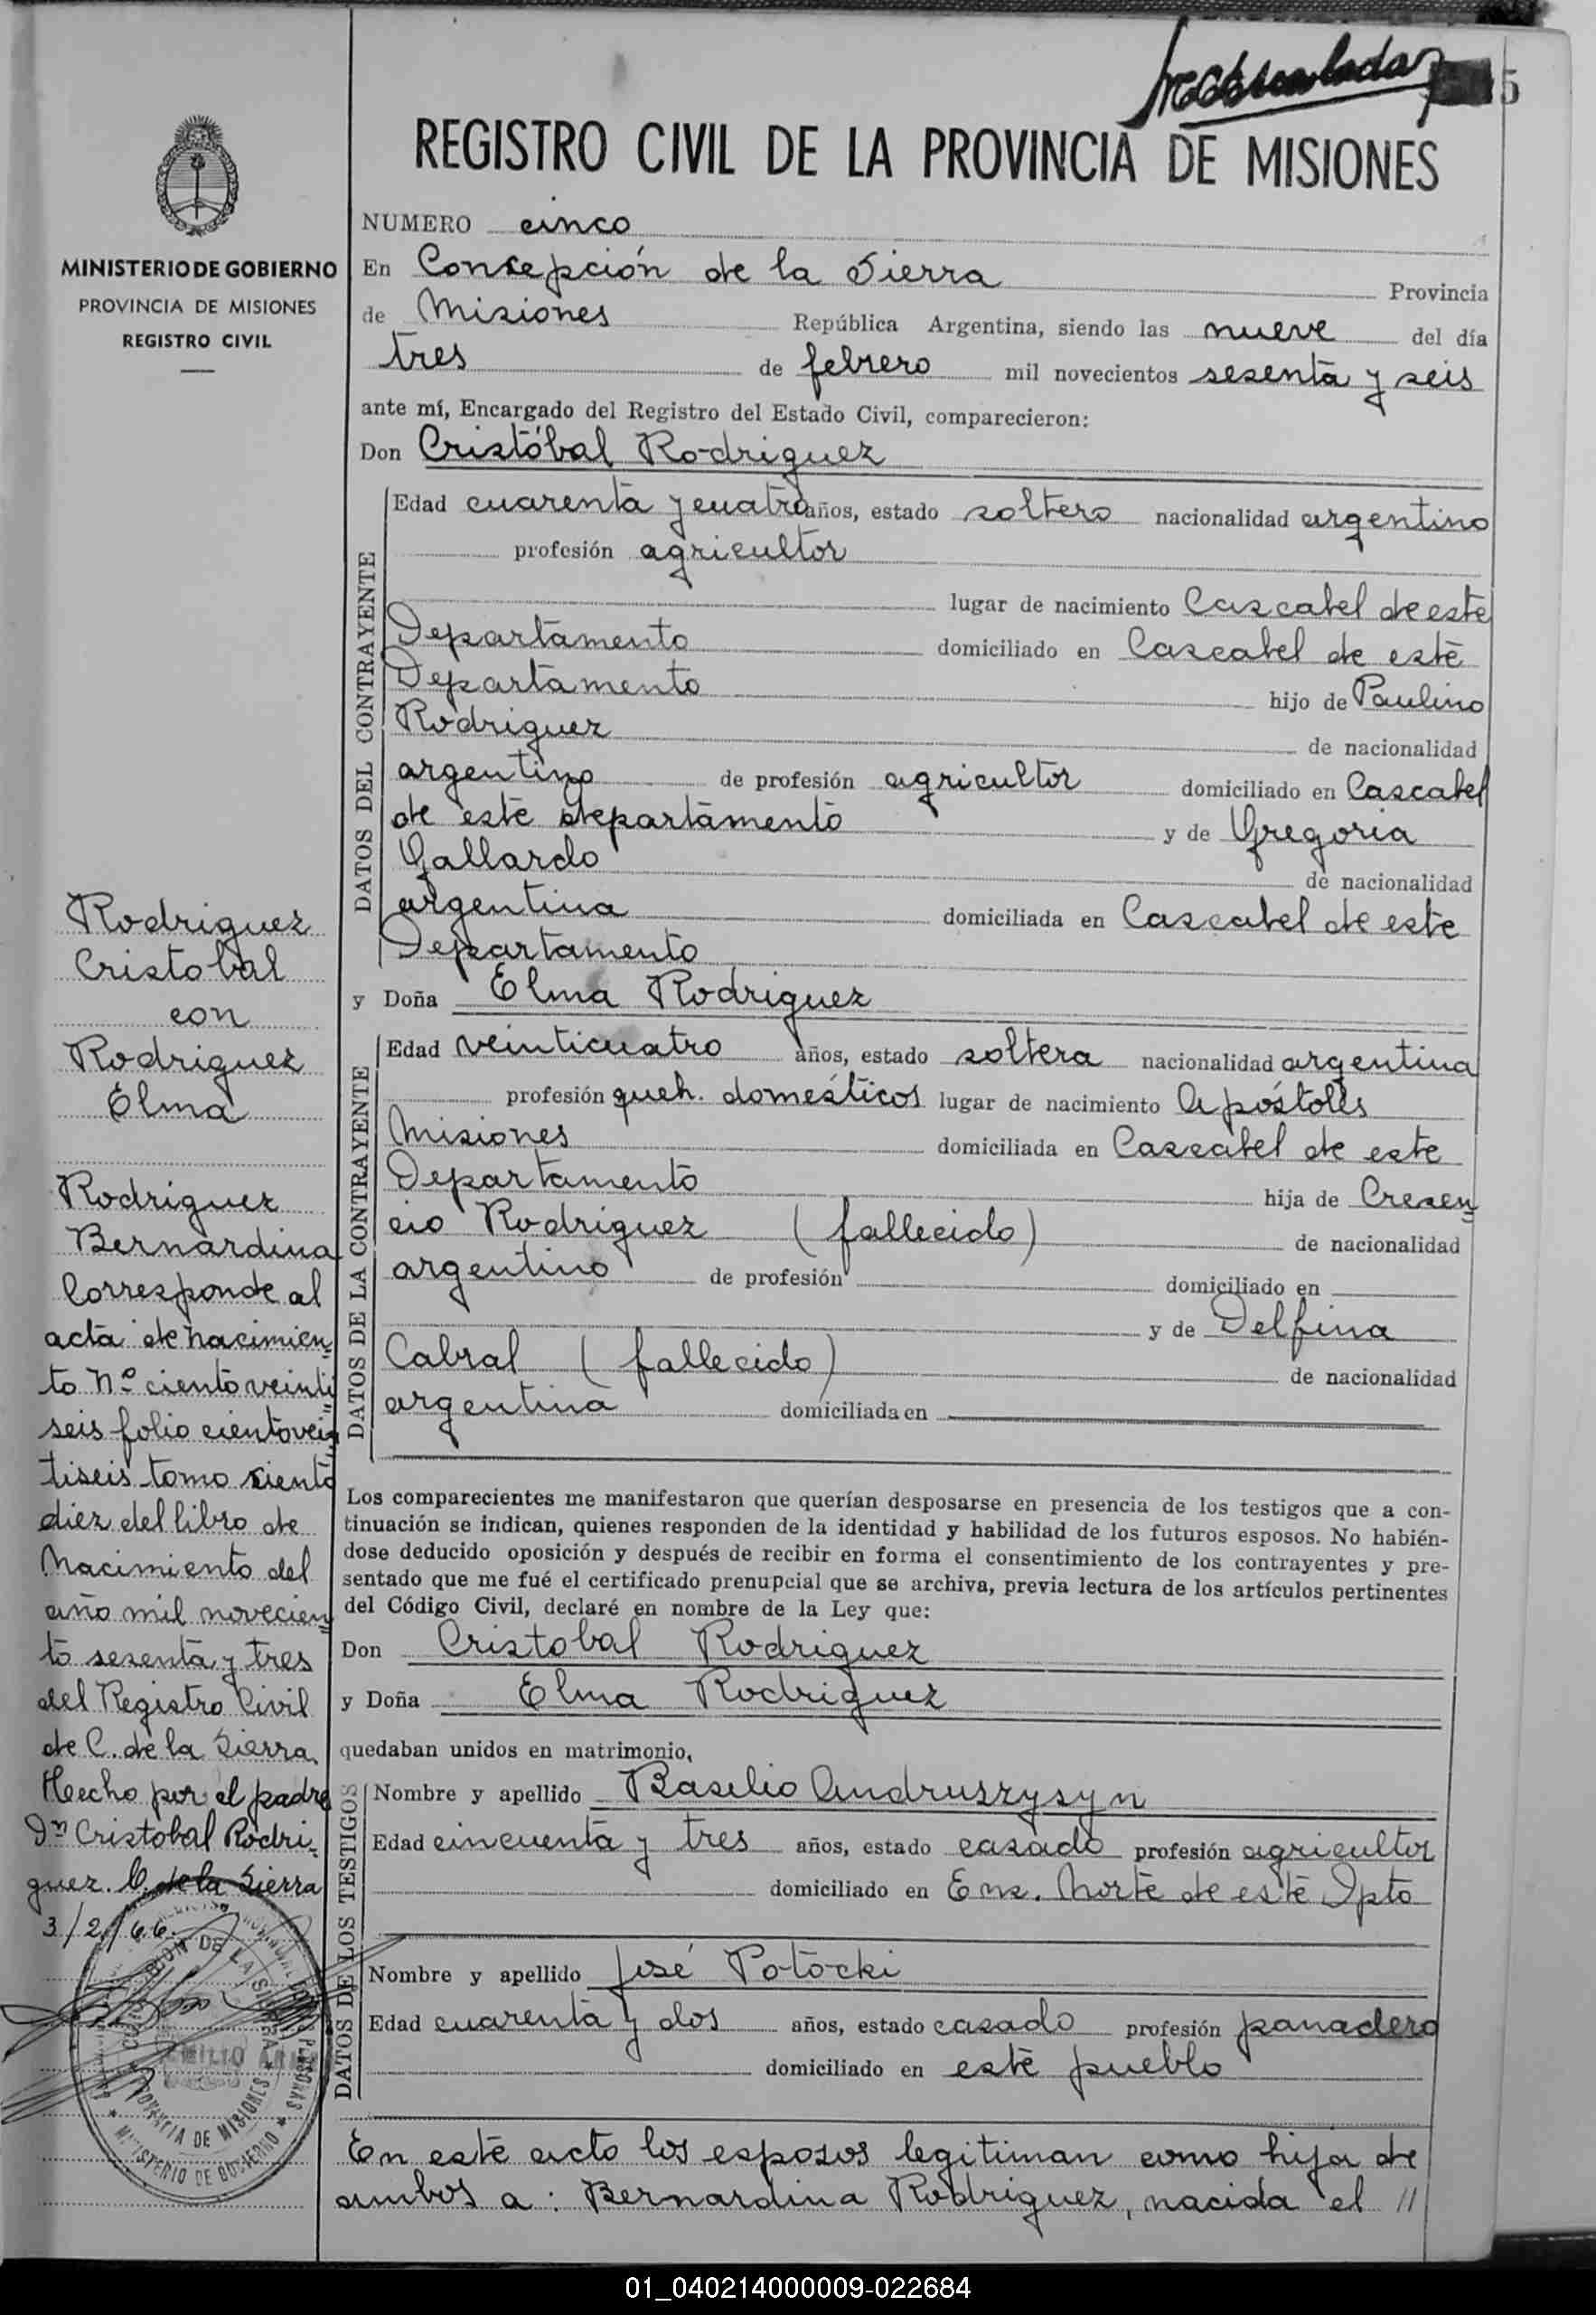 5
REGISTRO CIVIL DE LA PROVINCIA DE MISIONES
MINISTERIO DE GOBIERNO
PROVINCIA DE MISIONES
REGISTRO CIVIL
NUMERO cinco
En Concepción de la Sierra Provincia
de Misiones República Argentina, siendo las nueve del día
tres de febrero mil novecientos sesenta y seis
ante mí, Encargado del Registro del Estado Civil, comparecieron:
Don Cristóbal Rodriguez
DATOS DEL CONTRAYENTE
Edad cuarenta y cuatro años, estado soltero nacionalidad argentino
profesión agricultor
lugar de nacimiento Cascabel de este
Departamento domiciliado en Cascabel de este
Departamento hijo de Paulino
Rodriguez de nacionalidad
argentino de profesión agricultor domiciliado en Cascabel
de este departamento y de Gregoria
Gallardo de nacionalidad
argentina domiciliada en Cascabel de este
Departamento
y Doña Elma Rodriguez
DATOS DE LA CONTRAYENTE
Edad veinticuatro años, estado soltera nacionalidad argentina
profesión queh. domésticos lugar de nacimiento Apóstoles
Misiones domiciliada en Cascabel de este
Departamento hija de Cresen
cio Rodriguez (fallecido) de nacionalidad
argentino de profesión domiciliado en
y de Delfina
Cabral (fallecido) de nacionalidad
argentina domiciliada en
Los comparecientes me manifestaron que querían desposarse en presencia de los testigos que a con-
tinuación se indican, quienes responden de la identidad y habilidad de los futuros esposos. No habién-
dose deducido oposición y después de recibir en forma el consentimiento de los contrayentes y pre-
sentado que me fué el certificado prenupcial que se archiva, previa lectura de los artículos pertinentes
del Código Civil, declaré en nombre de la Ley que:
Don Cristobal Rodriguez
y Doña Elma Rodriguez
quedaban unidos en matrimonio,
DATOS DE LOS TESTIGOS
Nombre y apellido Basilio Andruszysyn
Edad cincuenta y tres años, estado casado profesión agricultor
domiciliado en Ens. Norte de este Dpto
Nombre y apellido José Potocki
Edad cuarenta y dos años, estado casado profesión panadero
domiciliado en este pueblo
En este acto los esposos legitiman como hija de
ambos a: Bernardina Rodriguez, nacida el //
Rodriguez
Cristobal
con
Rodriguez
Elma
Rodriguez
Bernardina
Corresponde al
acta de nacimien
to Nº ciento veinti
seis folio cientovein
tiseis tomo siento
diez del libro de
Nacimiento del
año mil novecien
to sesenta y tres
del Registro Civil
de C. de la Sierra
Hecho por el padre
Dn Cristobal Rodri
guez. C. de la Sierra
3/2/66.
PROVINCIA DE MISIONES
MINISTERIO DE GOBIERNO
01_040214000009-022684